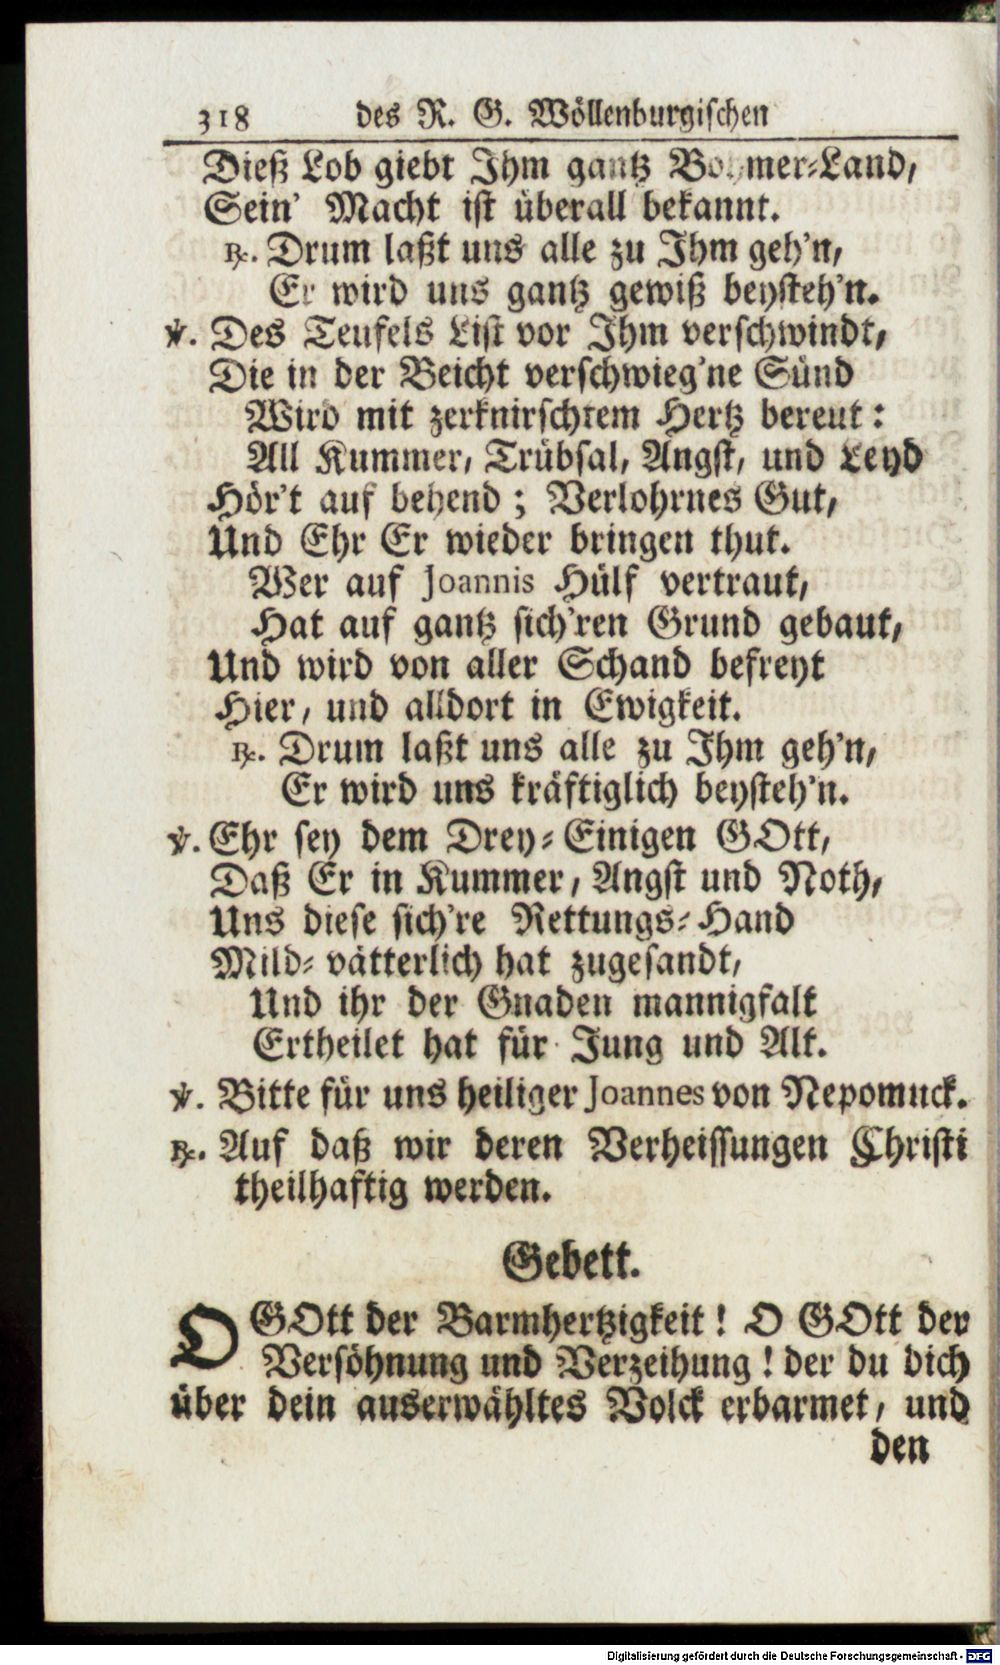 318 des R. G. Wöllenburgischen
Dieß Lob giebt Ihm gantz Böhmer-Land,
Sein' Macht ist überall bekannt.
℟. Drum laßt uns alle zu Ihm geh'n,
Er wird uns gantz gewiß beysteh'n.
℣. Des Teufels List vor Ihm verschwindt,
Die in der Beicht verschwieg'ne Sünd
Wird mit zerknirschtem Hertz bereut:
All Kummer, Trübsal, Angst, und Leyd
Hör't auf behend; Verlohrnes Gut,
Und Ehr Er wieder bringen thut.
Wer auf Joannis Hülf vertraut,
Hat auf gantz sich'ren Grund gebaut,
Und wird von aller Schand befreyt
Hier, und alldort in Ewigkeit.
℟. Drum laßt uns alle zu Ihm geh'n,
Er wird uns kräftiglich beysteh'n.
℣. Ehr sey dem Drey-Einigen GOtt,
Daß Er in Kummer, Angst und Noth,
Uns diese sich're Rettungs-Hand
Mild-vätterlich hat zugesandt,
Und ihr der Gnaden mannigfalt
Ertheilet hat für Jung und Alt.
℣. Bitte für uns heiliger Joannes von Nepomuck.
℟. Auf daß wir deren Verheissungen Christi
theilhaftig werden.
Gebett.
O GOtt der Barmhertzigkeit! O GOtt der
Versöhnung und Verzeihung! der du dich
über dein auserwähltes Volck erbarmet, und
den
Digitalisierung gefördert durch die Deutsche Forschungsgemeinschaft - DFG